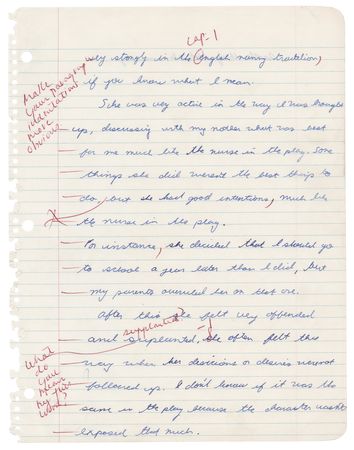 cap-1
very strongly in the (english nanny tradition,
Make your paragraph indentations more obvious
if you know what I mean.
She was very active in the way I was brought
up, discussing with my mother what was best
for me much like the nurse in the play. Some
things she did weren't the best things to
do, but she had good intentions, much like
the nurse in the play.
For instance, she decided that I should go
to school a year later than I did, but
my parents overruled her on that one.
After this she felt very offended
supplanted
and suplanted, she often felt this
What do you mean by this word?
way when her decisions or desires werent
followed up. I don't know if it was the
same in the play because the character wasn't
exposed that much.